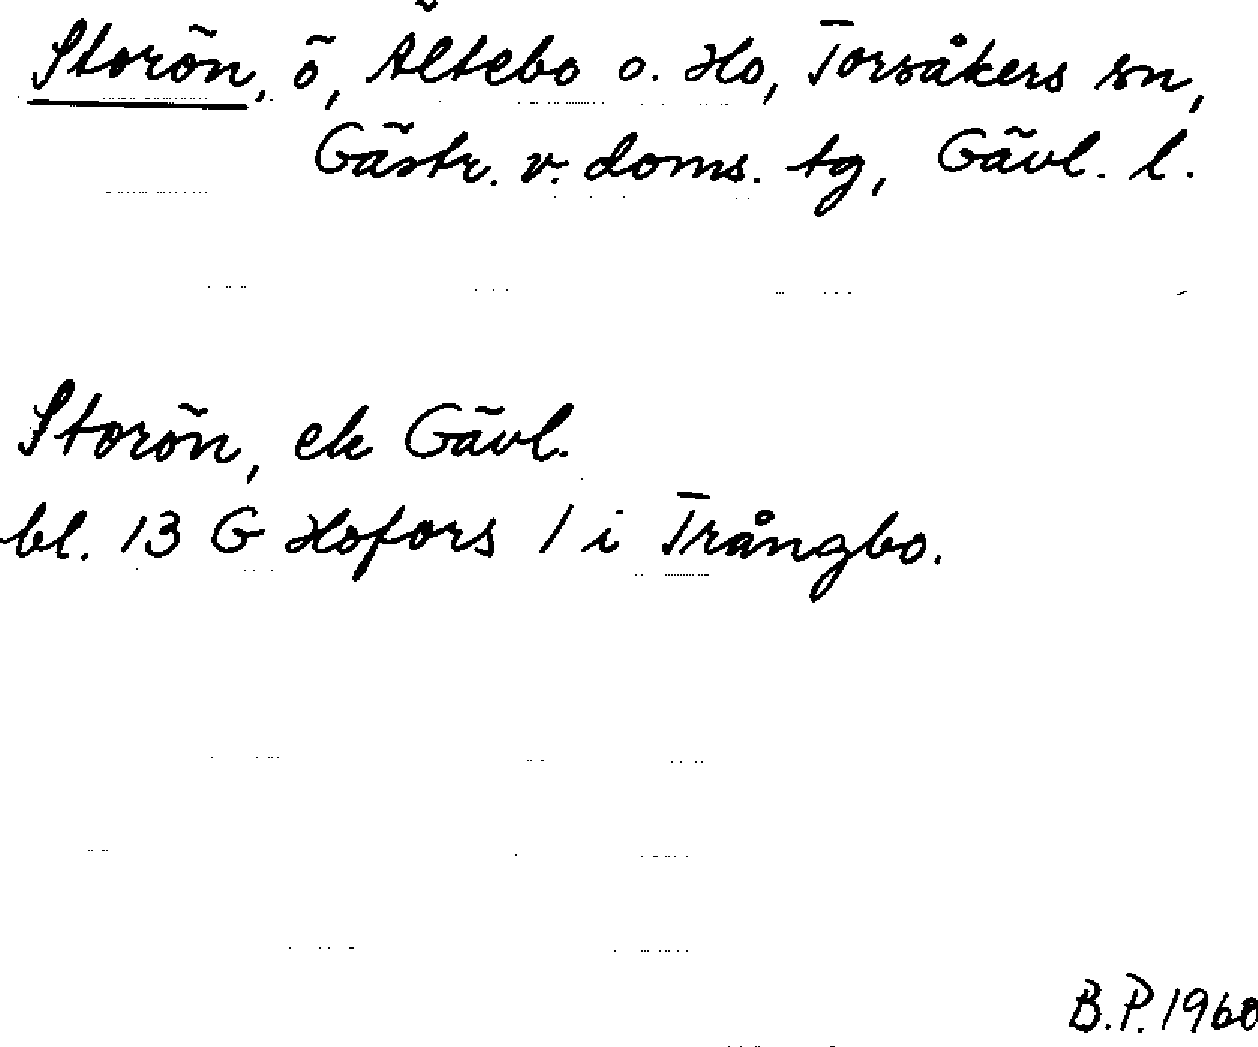 Storön, ö, Ältebo o. Ho, Torsåkers sn,
Gästr. v. doms. tg, Gävl. l.
Storön, ek Gävl.
bl. 13 G Hofors / i Trångbo.
B.P. 1960